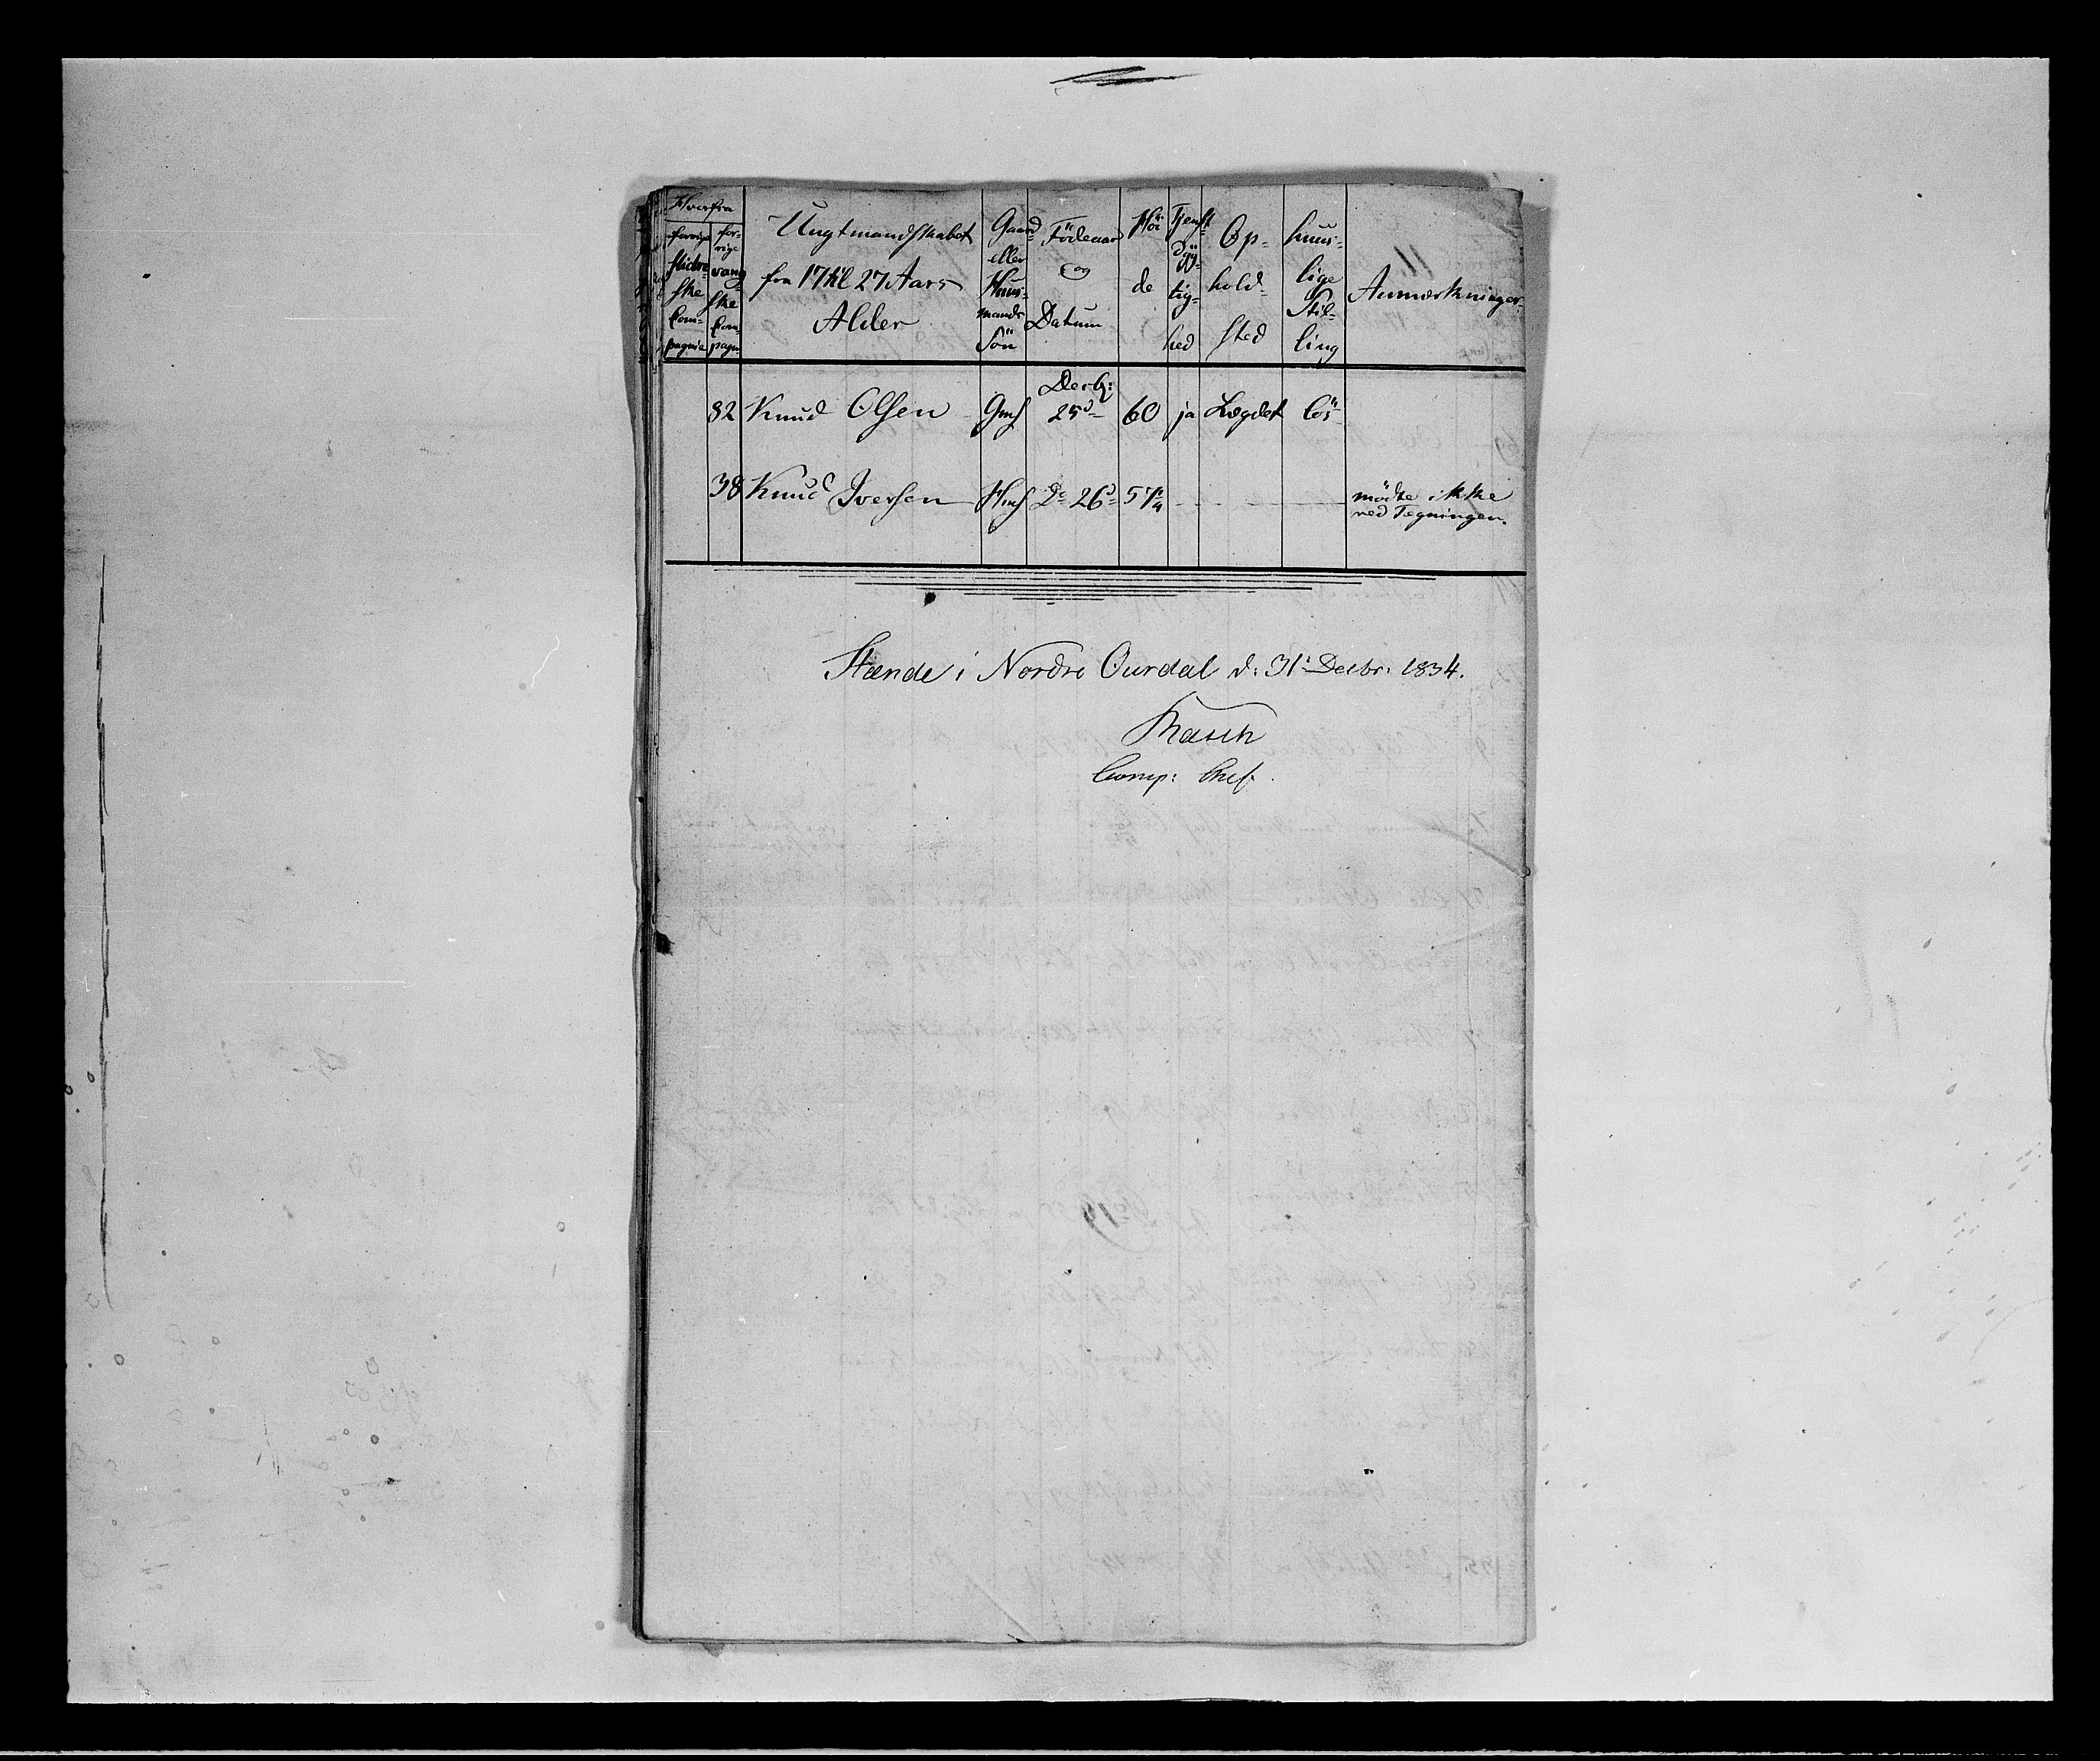 Hvorfra
forrige Slidreske Compagnie
forrige vangske Compagn
Ungtmandskabet fra 17 til 27 Aars Alder
Gaard eller Huusmands Sön
Födeaar og Datum
Höide
Tjenstdygtighed
Opholdsted
huuslige Stilling
Anmærkninger
32 Knud Olsen Gms Decbr: 25d 60 ja Lægdet lös
38 Knud Iversen Hms Do 26d 57¼ mödte ikke
ved Tegningen.
Stende i Nordre Ourdal d: 31te Decbr: 1834.
Comp: Chef.